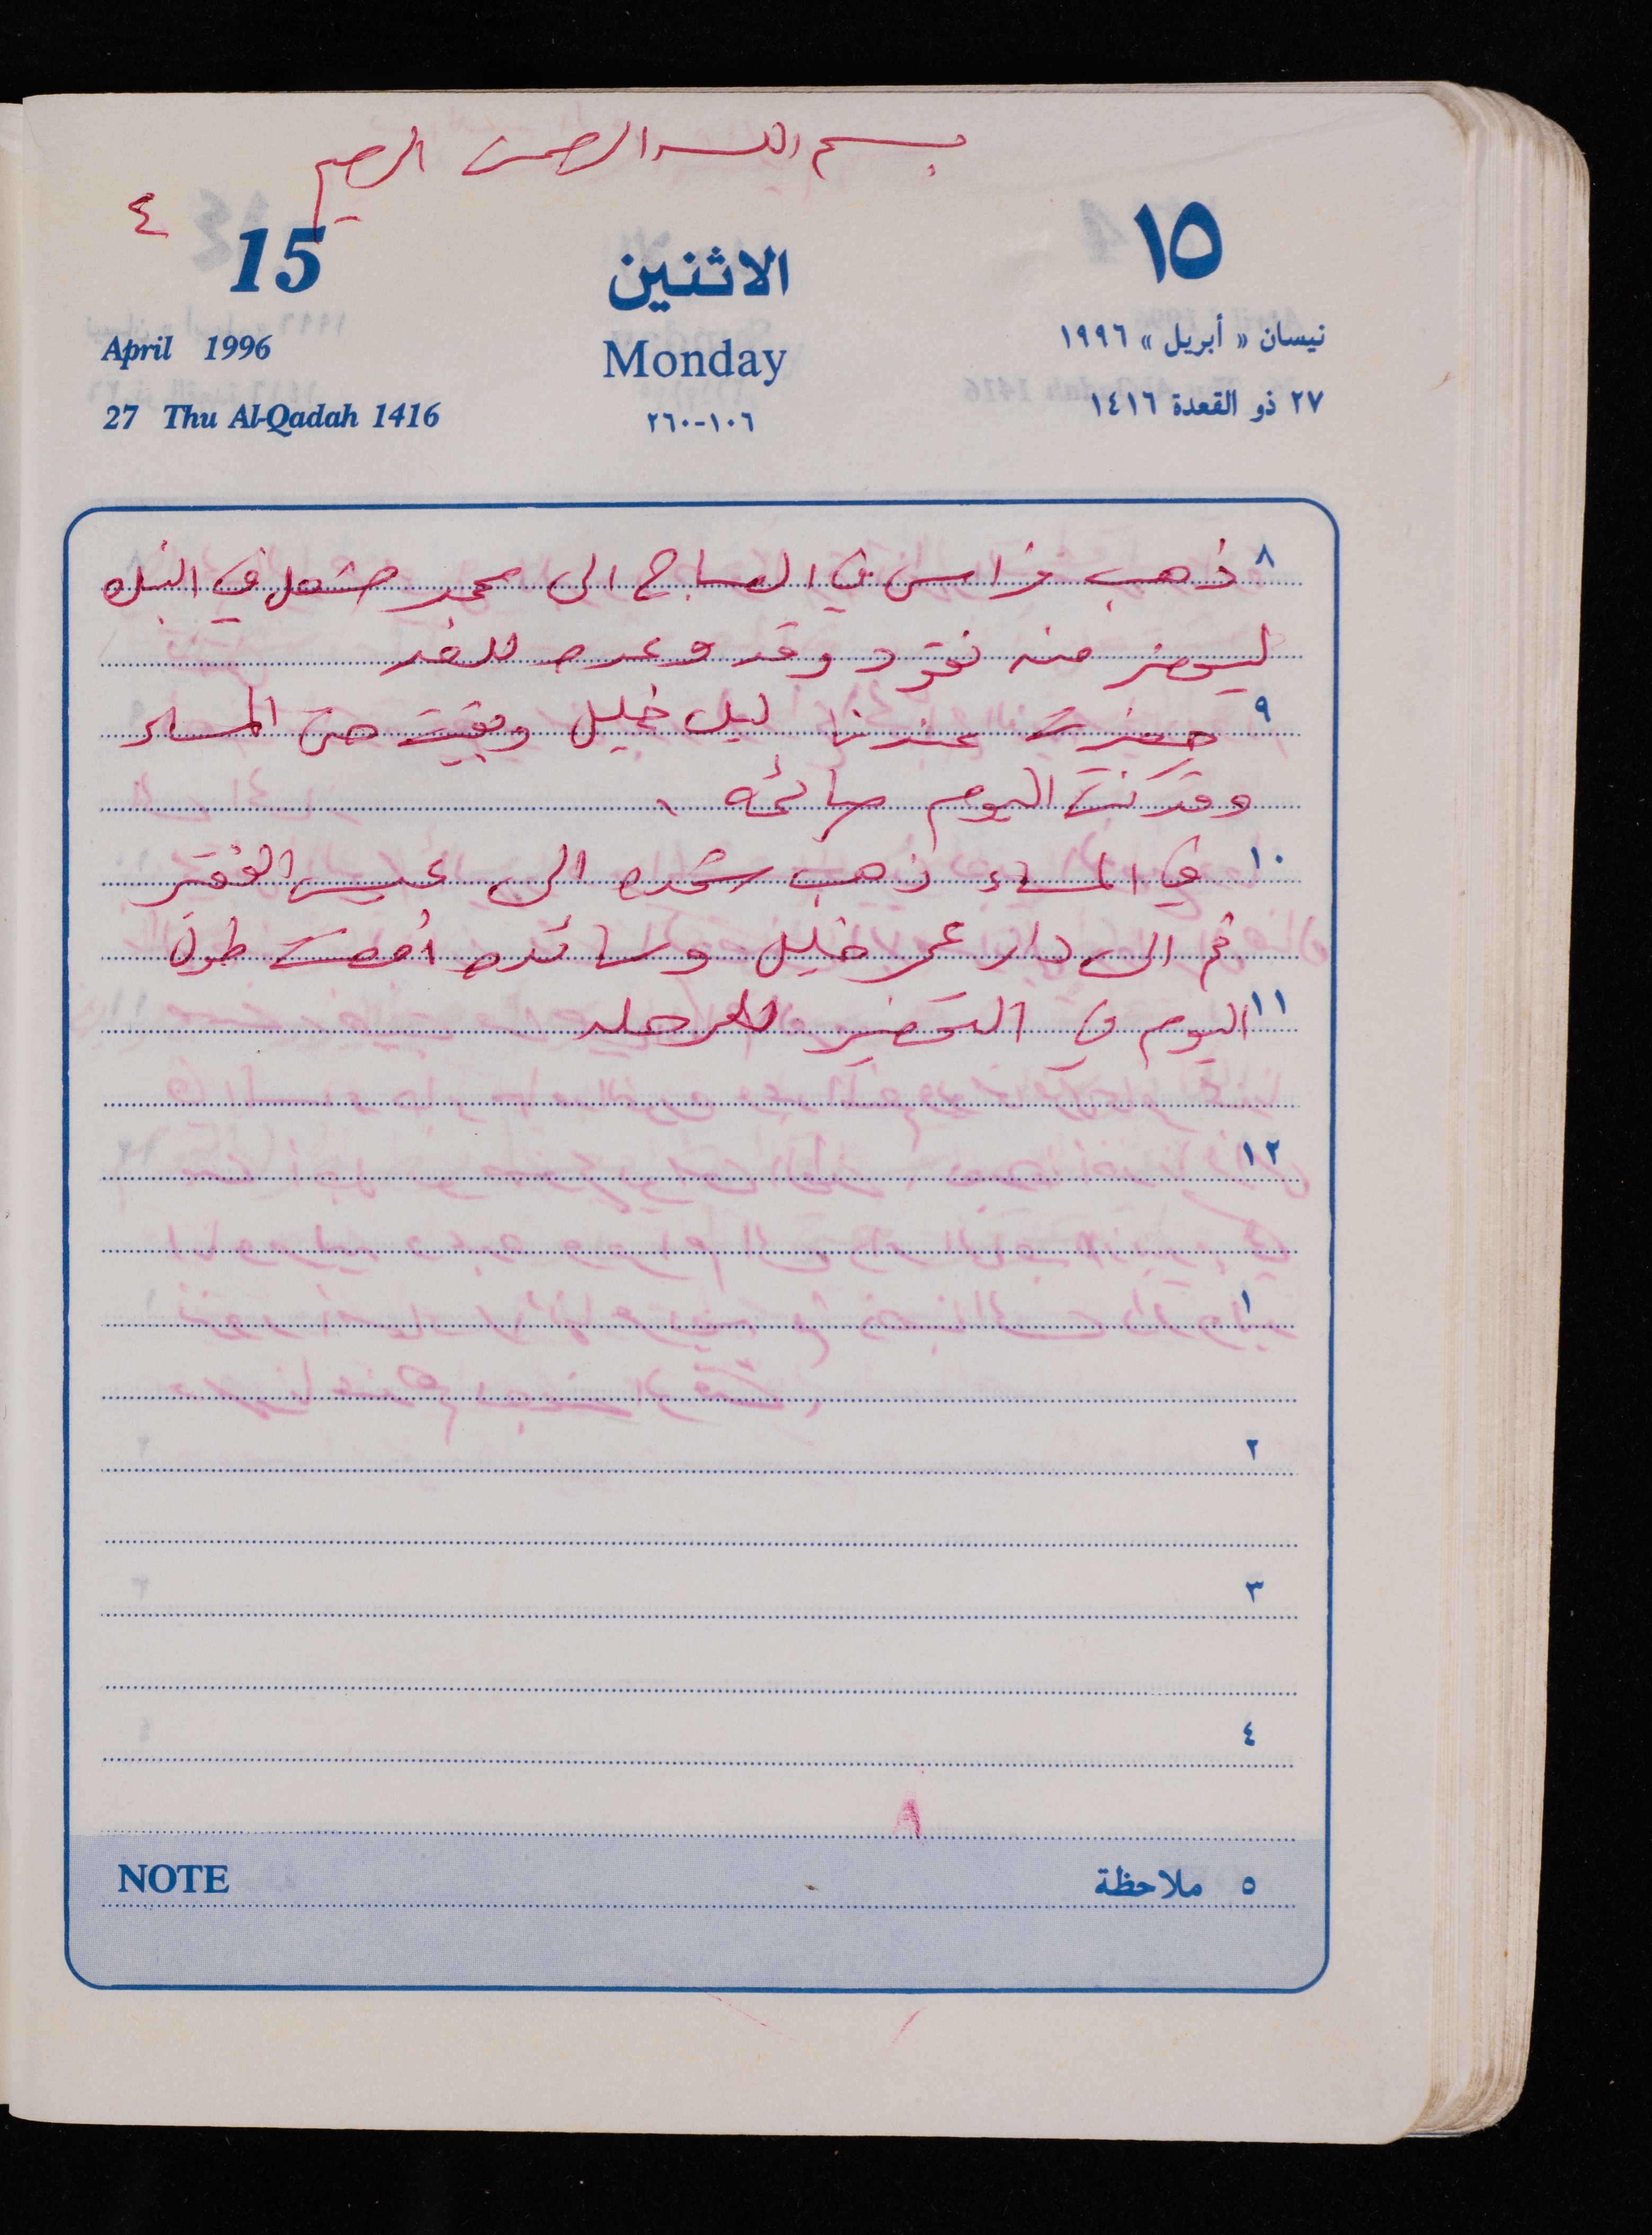 بسم الله الرحمن الرحيم
٤
15 الاثنين ١٥
April 1996 Monday نيسان « أبريل » ١٩٩٦
27 Thu Al-Qadah 1416 ٢٦٠-١٠٦ ٢٧ ذو القعدة ١٤١٦
٨ ذهب فراس في الصباح الى محمد مشعل في البلد
ليحضر منه نقود وقد وعده للغد
٩ حضرت عندنا ليل خليل وبقيت حتى المساء
وقد كنت اليوم صائمه .
١٠ في المساء ذهب شحده الى عيسى الفقير
ثم الى دار عمر خليل وسائده أمضت طول
١١ اليوم في التحضير للرحله
١٢
١
٢
٣
٤
NOTE ٥ ملاحظة